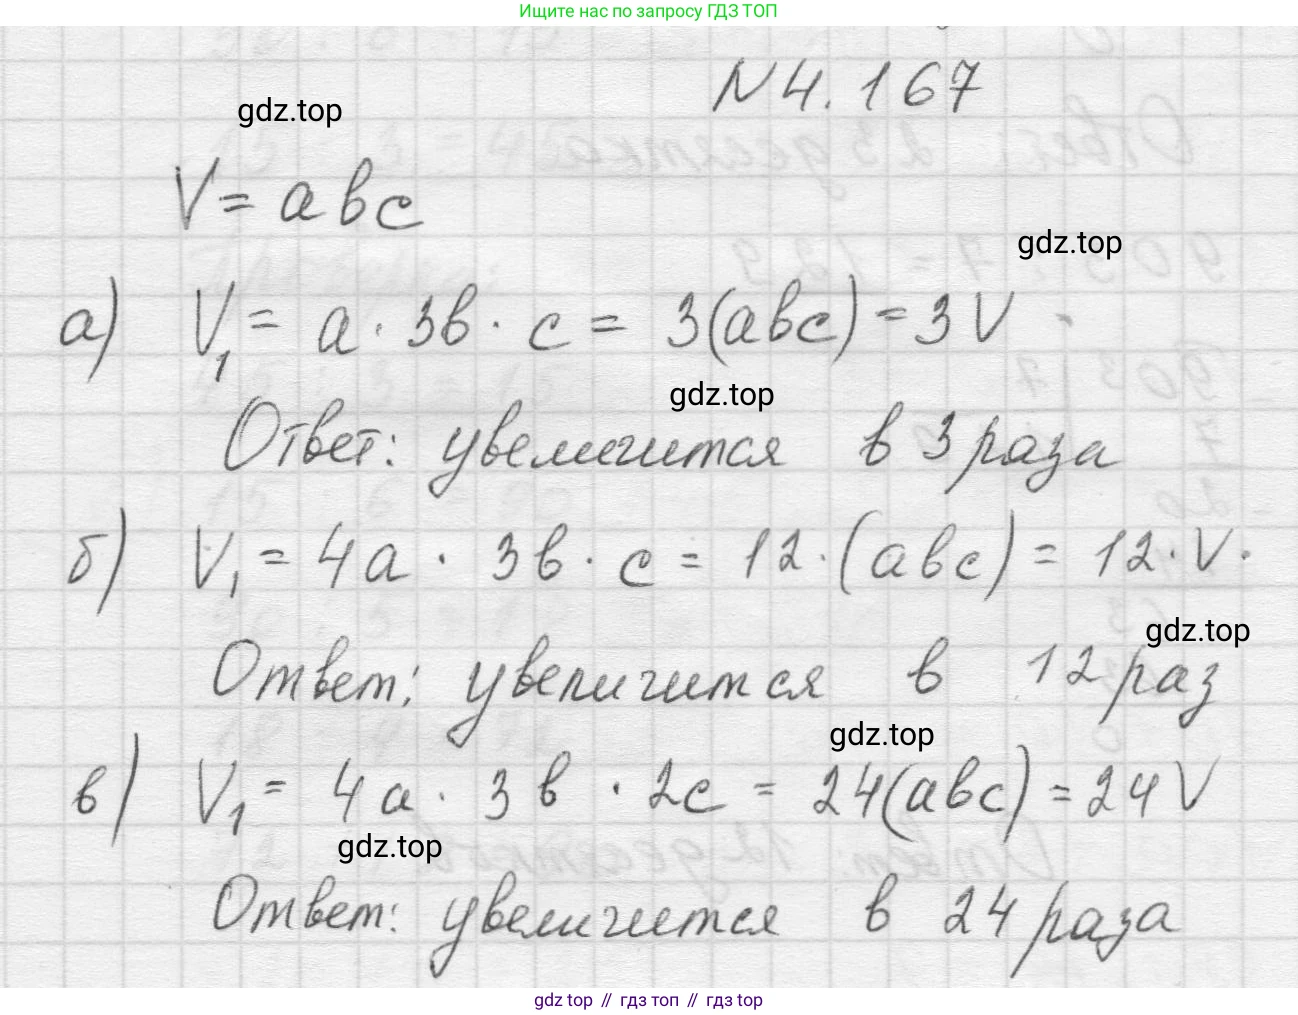 Ищите нас по запросу ГДЗ ТОП
N 4.167
gdz.top
V = abc
gdz.top
а) V₁ = a · 3b · c = 3(abc) = 3V
gdz.top
Ответ: увеличится в 3 раза
б) V₁ = 4a · 3b · c = 12 · (abc) = 12 · V.
gdz.top
Ответ: увеличится в 12 раз
gdz.top
в) V₁ = 4a · 3b · 2c = 24(abc) = 24V
gdz.top
Ответ: увеличится в 24 раза
gdz top // гдз топ // гдз top